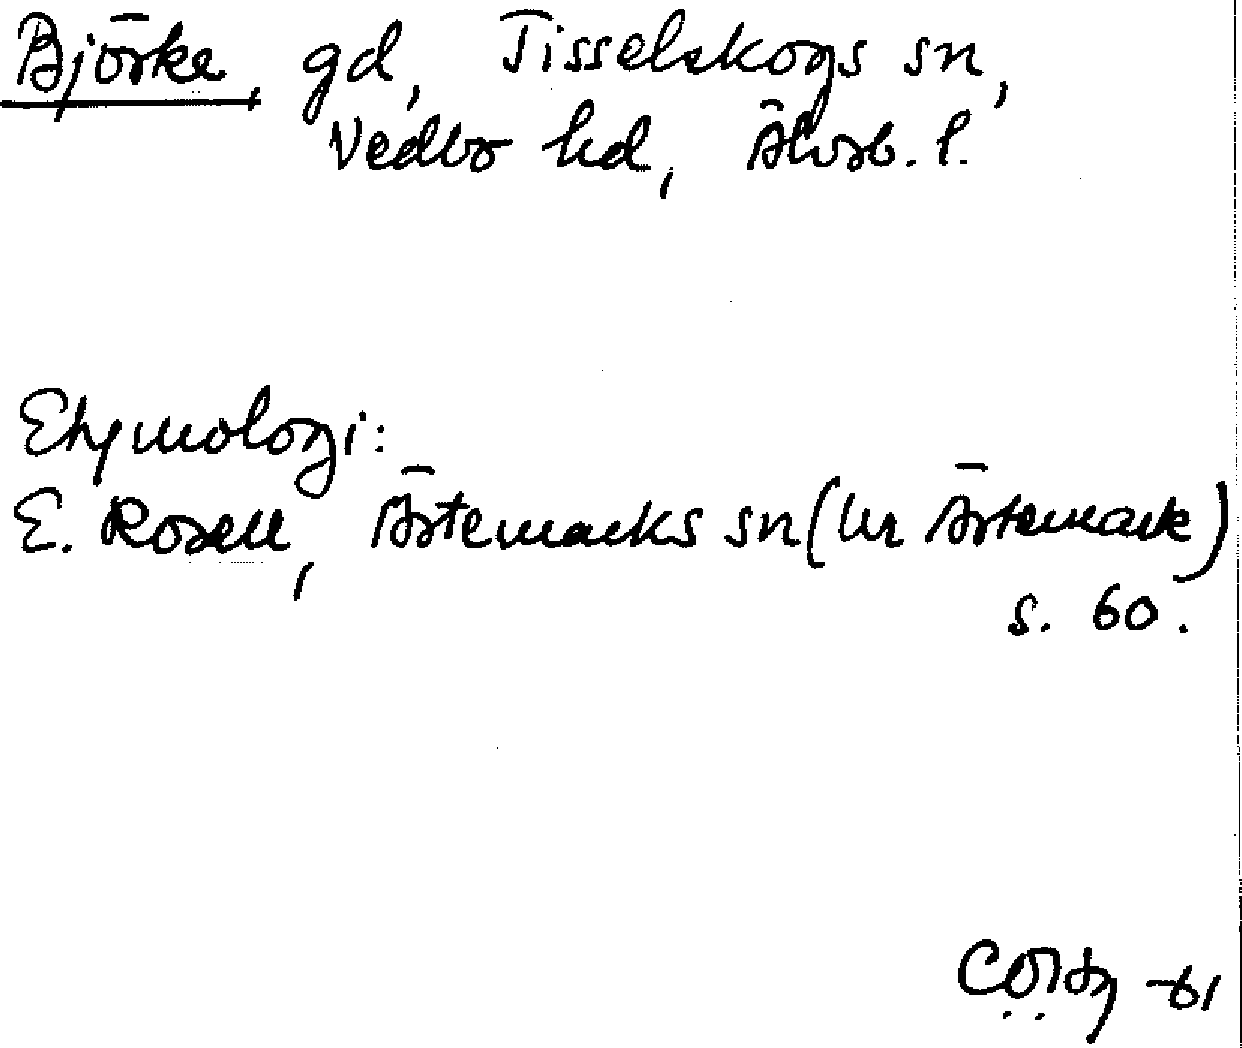 Björke, gd, Tisselskogs sn,
Vedbo hd, Älvsb. l.
Etymologi:
E. Rosell, Ärtemarks sn (ur Ärtemark)
s. 60.
-61